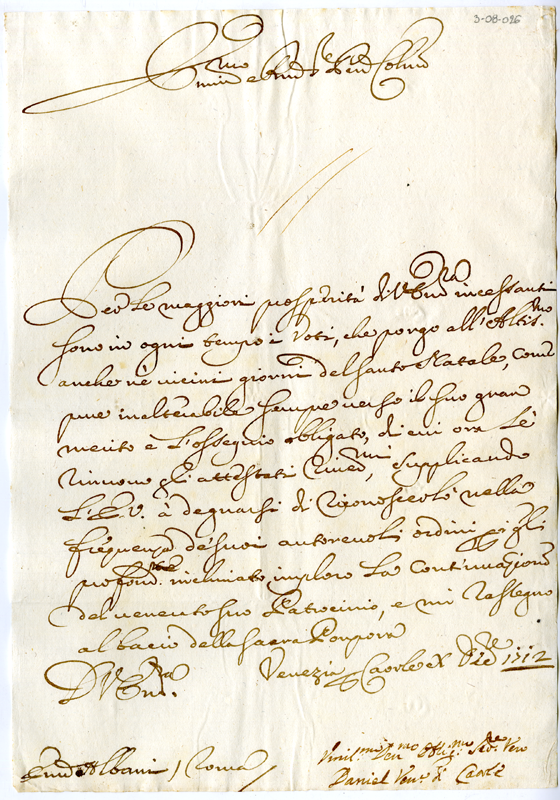 3-08-026
Em.mo mio e Rev.mo Sig.re Pad.ne Col.mo
Per le maggiori prosperità di V. Em.za incessanti
sono in ogni tempo i voti, che porgo all'Altis.mo
anche nè vicini giorni del santo Natale, com
pure inalterabile sempre verso il suo gran
merito è l'ossequio obligato, di cui ora Le
rinuovo gli attestati, supplicando
L'E.V. à degnarsi di riconoscerlo nella
frequenza de suoi autorevoli ordini per gli
profond.te inchinato imploro la continuazione
del venerato suo Patrocinio, e mi rassegno
al bacio della sacra Porpora
D. V. Em.za Venezia per Caorle 1712
Em. Albani / Roma
Umil.mo Dev.mo Obl.mo Ser.re Vero
Daniel Ven.o di Caorle